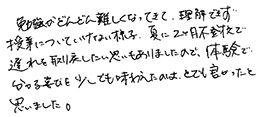 勉強がどんどん難しくなってきて、理解できず
授業についていけない様子。夏に2ヶ月不登校で
遅れを取り戻したい思いもありましたので、体験で
分かる喜びを少しでも味わえたのは、とても良かったと
思いました。